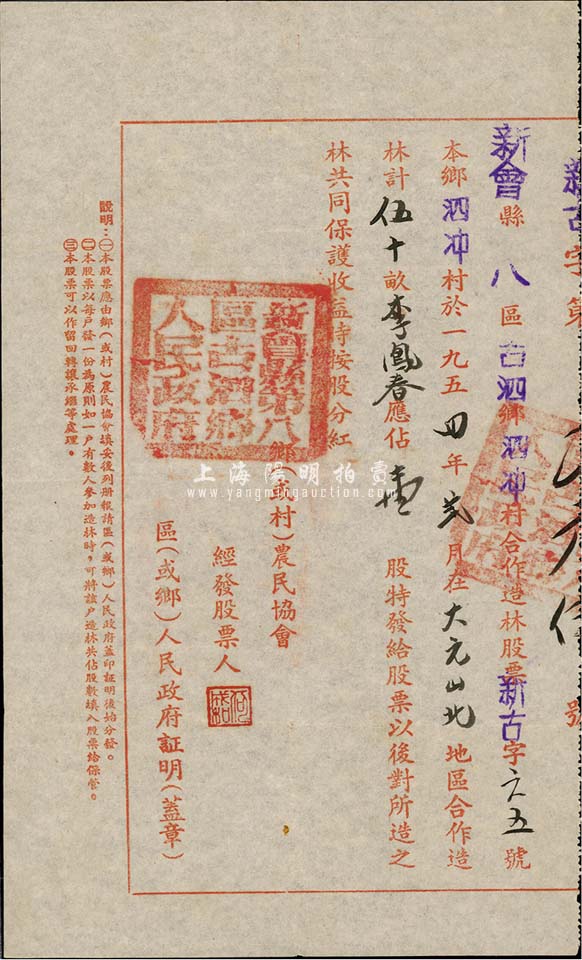 新古字第
號
新會縣八區古泗鄉泗冲村合作造林股票新古字六五號
本鄉泗冲村於一九五四年弍月在大元山北地區合作造
林計伍十畝李鳳春應佔壹股特發給股票以後對所造之
林共同保護收益時按股分紅
鄉(或村)農民協會
經發股票人
區(或鄉)人民政府証明(蓋章)
新會縣第八區古泗鄉人民政府
說明:㊀本股票應由鄉(或村)農民協會填妥後列册報請區(或鄉)人民政府蓋印証明後始分發。
㊁本股票以每戶發一份為原則如一戶有數人參加造林時,可將該戶造林共佔股數填入股票給保管。
㊂本股票可以作留回轉讓承繼等處理。
上海陽明拍賣
www.yangmingauction.com